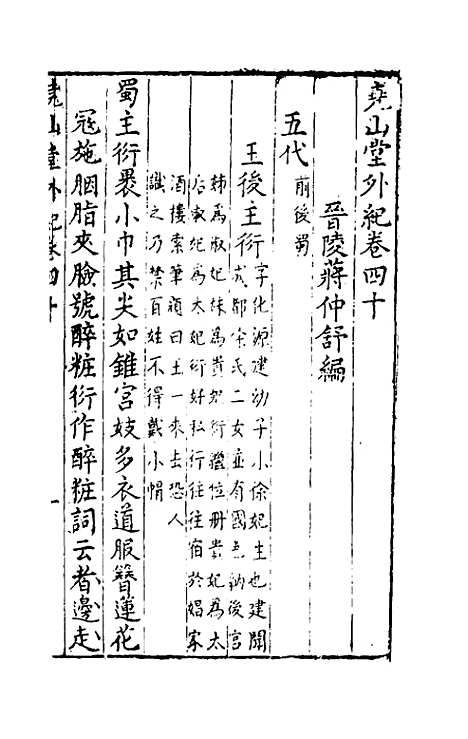 堯山堂外紀卷四十
晉陵蔣仲舒編
五代 前後蜀
王後主衍 字化源建幼子小徐妃生也建聞
成都徐氏二女並有國色納後宮
姊為淑妃妹為貴妃衍繼位册貴妃為太
后淑妃為太妃衍好私行往往宿於娼家
酒樓索筆題曰王一來去恐人
識之乃禁百姓不得戴小帽
蜀主衍裹小巾其尖如錐宮妓多衣道服簪蓮花
冠施胭脂夾臉號醉粧衍作醉粧詞云者邊走
堯山堂外紀卷四十 一